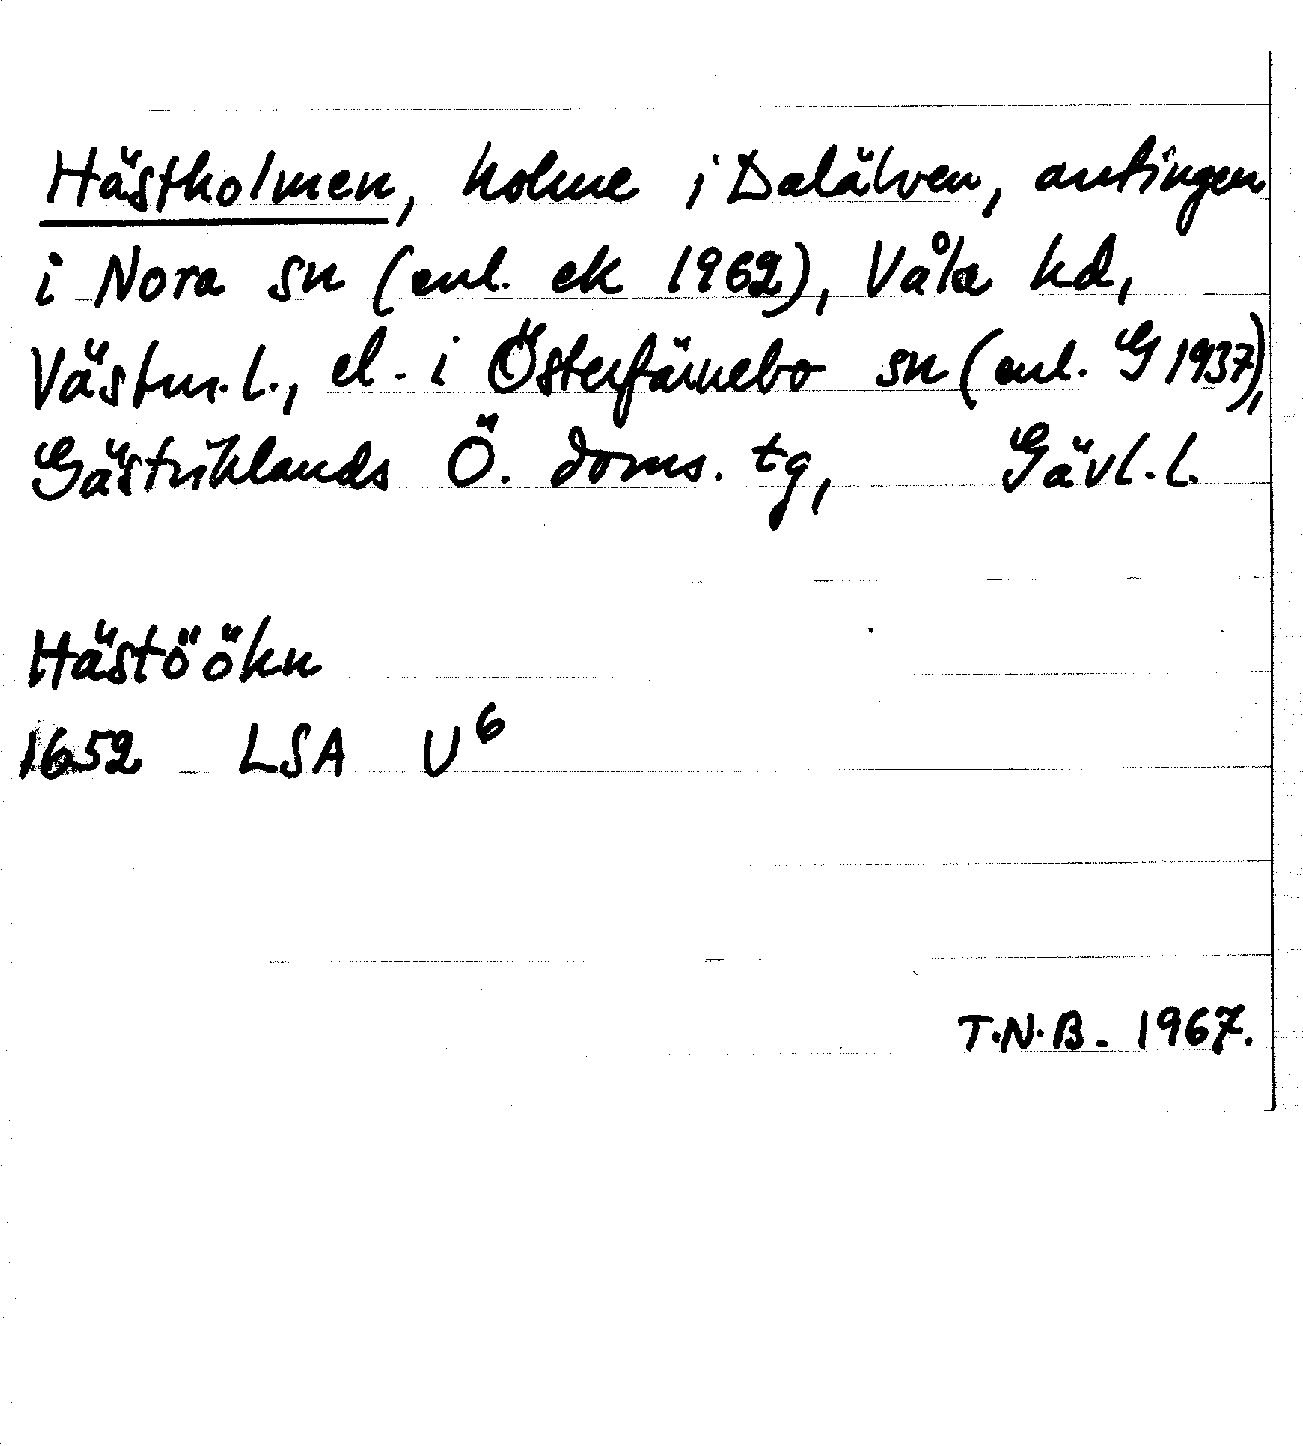 Hästholmen, holme i Dalälven, antingen
i Nora sn (enl. ek 1962), Våla hd,
Västm. l., el. i Österfärnebo sn (enl. G 1937),
Gästriklands Ö. doms. tg, Gävl. l.
Hästöökn
1652 LSA U⁶
T.N.B. 1967.